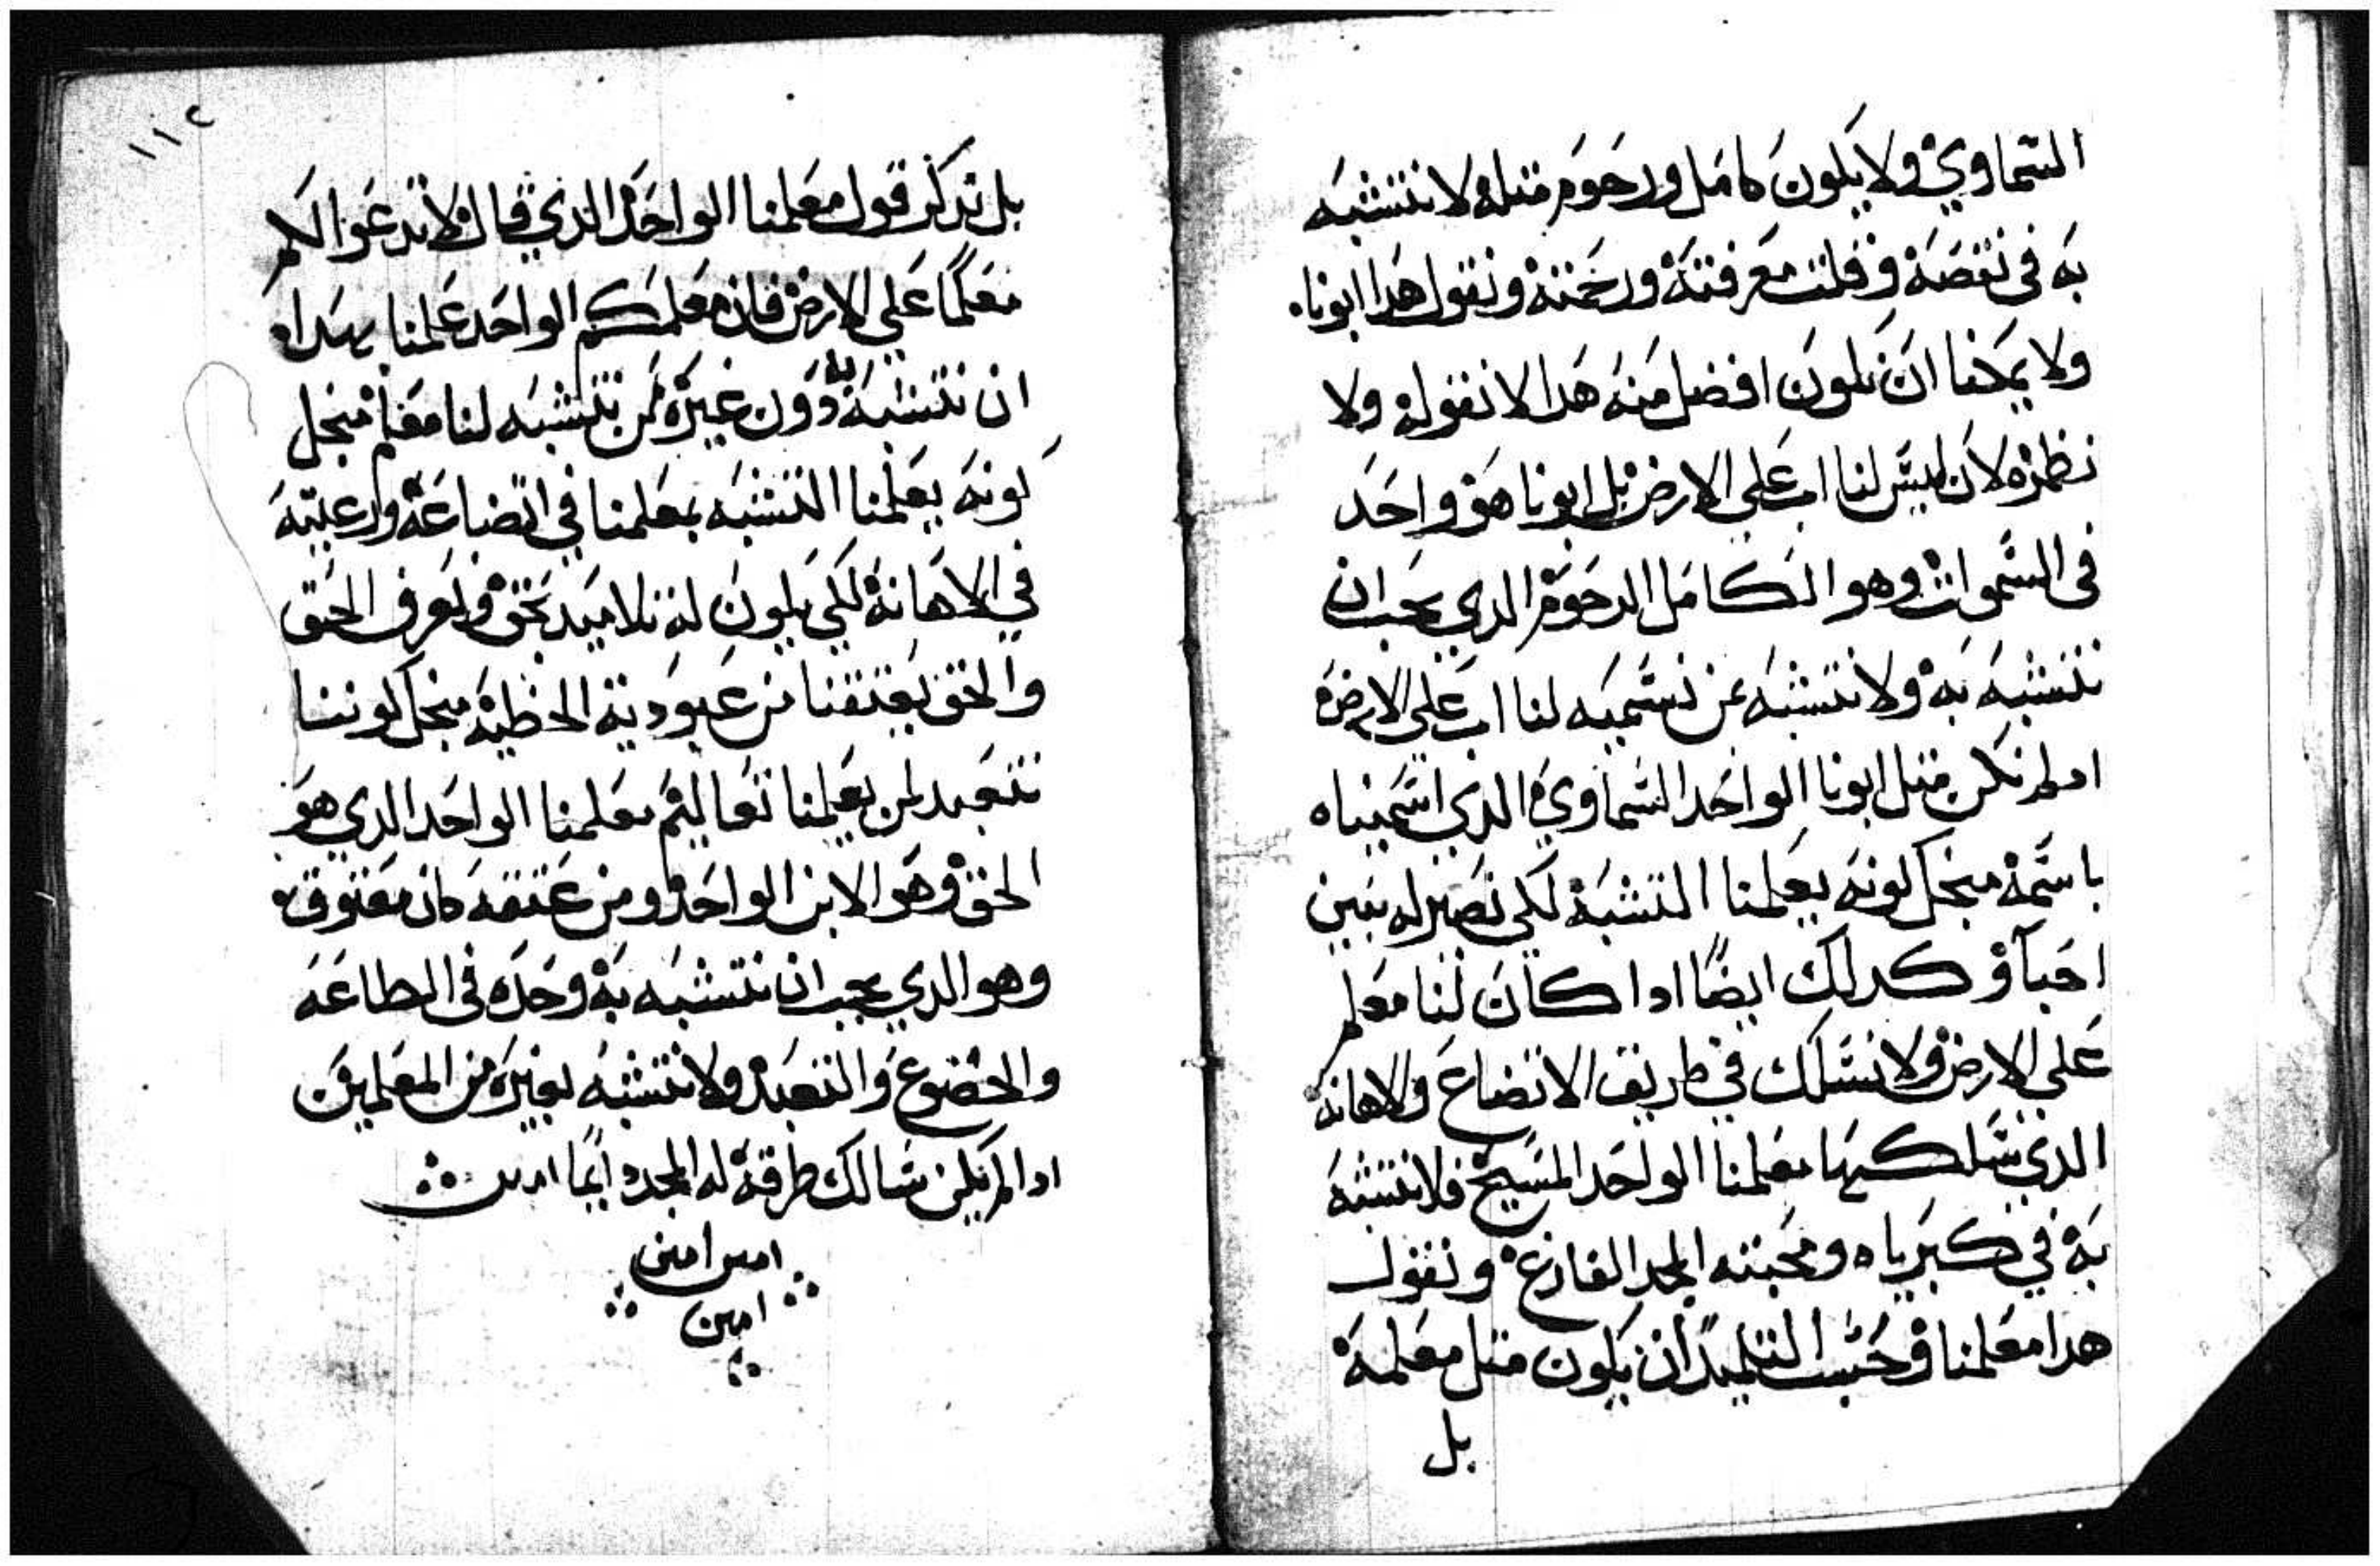 السماوي ولا يكون كامل ورحوم متله لا نتشبه
به في نقصه وقلت معرفته ورحمته ونقول هدا ابونا
ولا يمكنا ان نكون افضل منه هدا لا نقوله ولا
نظنه لان ليس لنا اب علي الارض بل ابونا هو واحد
في السموات وهو الكامل الرحوم الدي يجب ان
نتشبه به ولا نتشبه بمن نسميه لنا اب علي الارض
ادا لم نكن متل ابونا الواحد السماوي الدي اسميناه
باسمه منجل كونه يعلمنا التشبه لكي نصير له بنين
احبا وكدلك ايضا ادا كان لنا معلم
علي الارض ولا نسلك في طريق الاتضاع والاهانه
الدي سلكها معلمنا الواحد المسيح فلا نتشبه
به في كبرياه ومحبته المجد الفارغ ونقول
هدا معلمنا وحسب التلميد ان يكون متل معلمه
بل
١١٢
بل تدكر قول معلمنا الواحد الذي قال لا تدعوا لكم
معلما علي الارض فان معلمكم الواحد علمنا
ان نتشبه به دون غيره لمن نتشبه لنا معلم منجل
كونه يعلمنا التشبه بمعلمنا في اتضاعه
في الاهانه لكي يكون له تلاميد بحق ونعرف الحق
والحق يعتقنا من عبودية الخطيه منجل كوننا
نتعبد لمن يعلمنا تعاليم معلمنا الواحد الدي هو
الحق وهو الابن الواحد ومن عتقه كان معتوق
وهو الدي يجب ان نتشبه به وحده في الطاعه
والخضوع والتعبد ولا نتشبه بغيره من المعلمين
ادا لم يكن سالك طرقه له المجد دايما امين
امين امين
امين